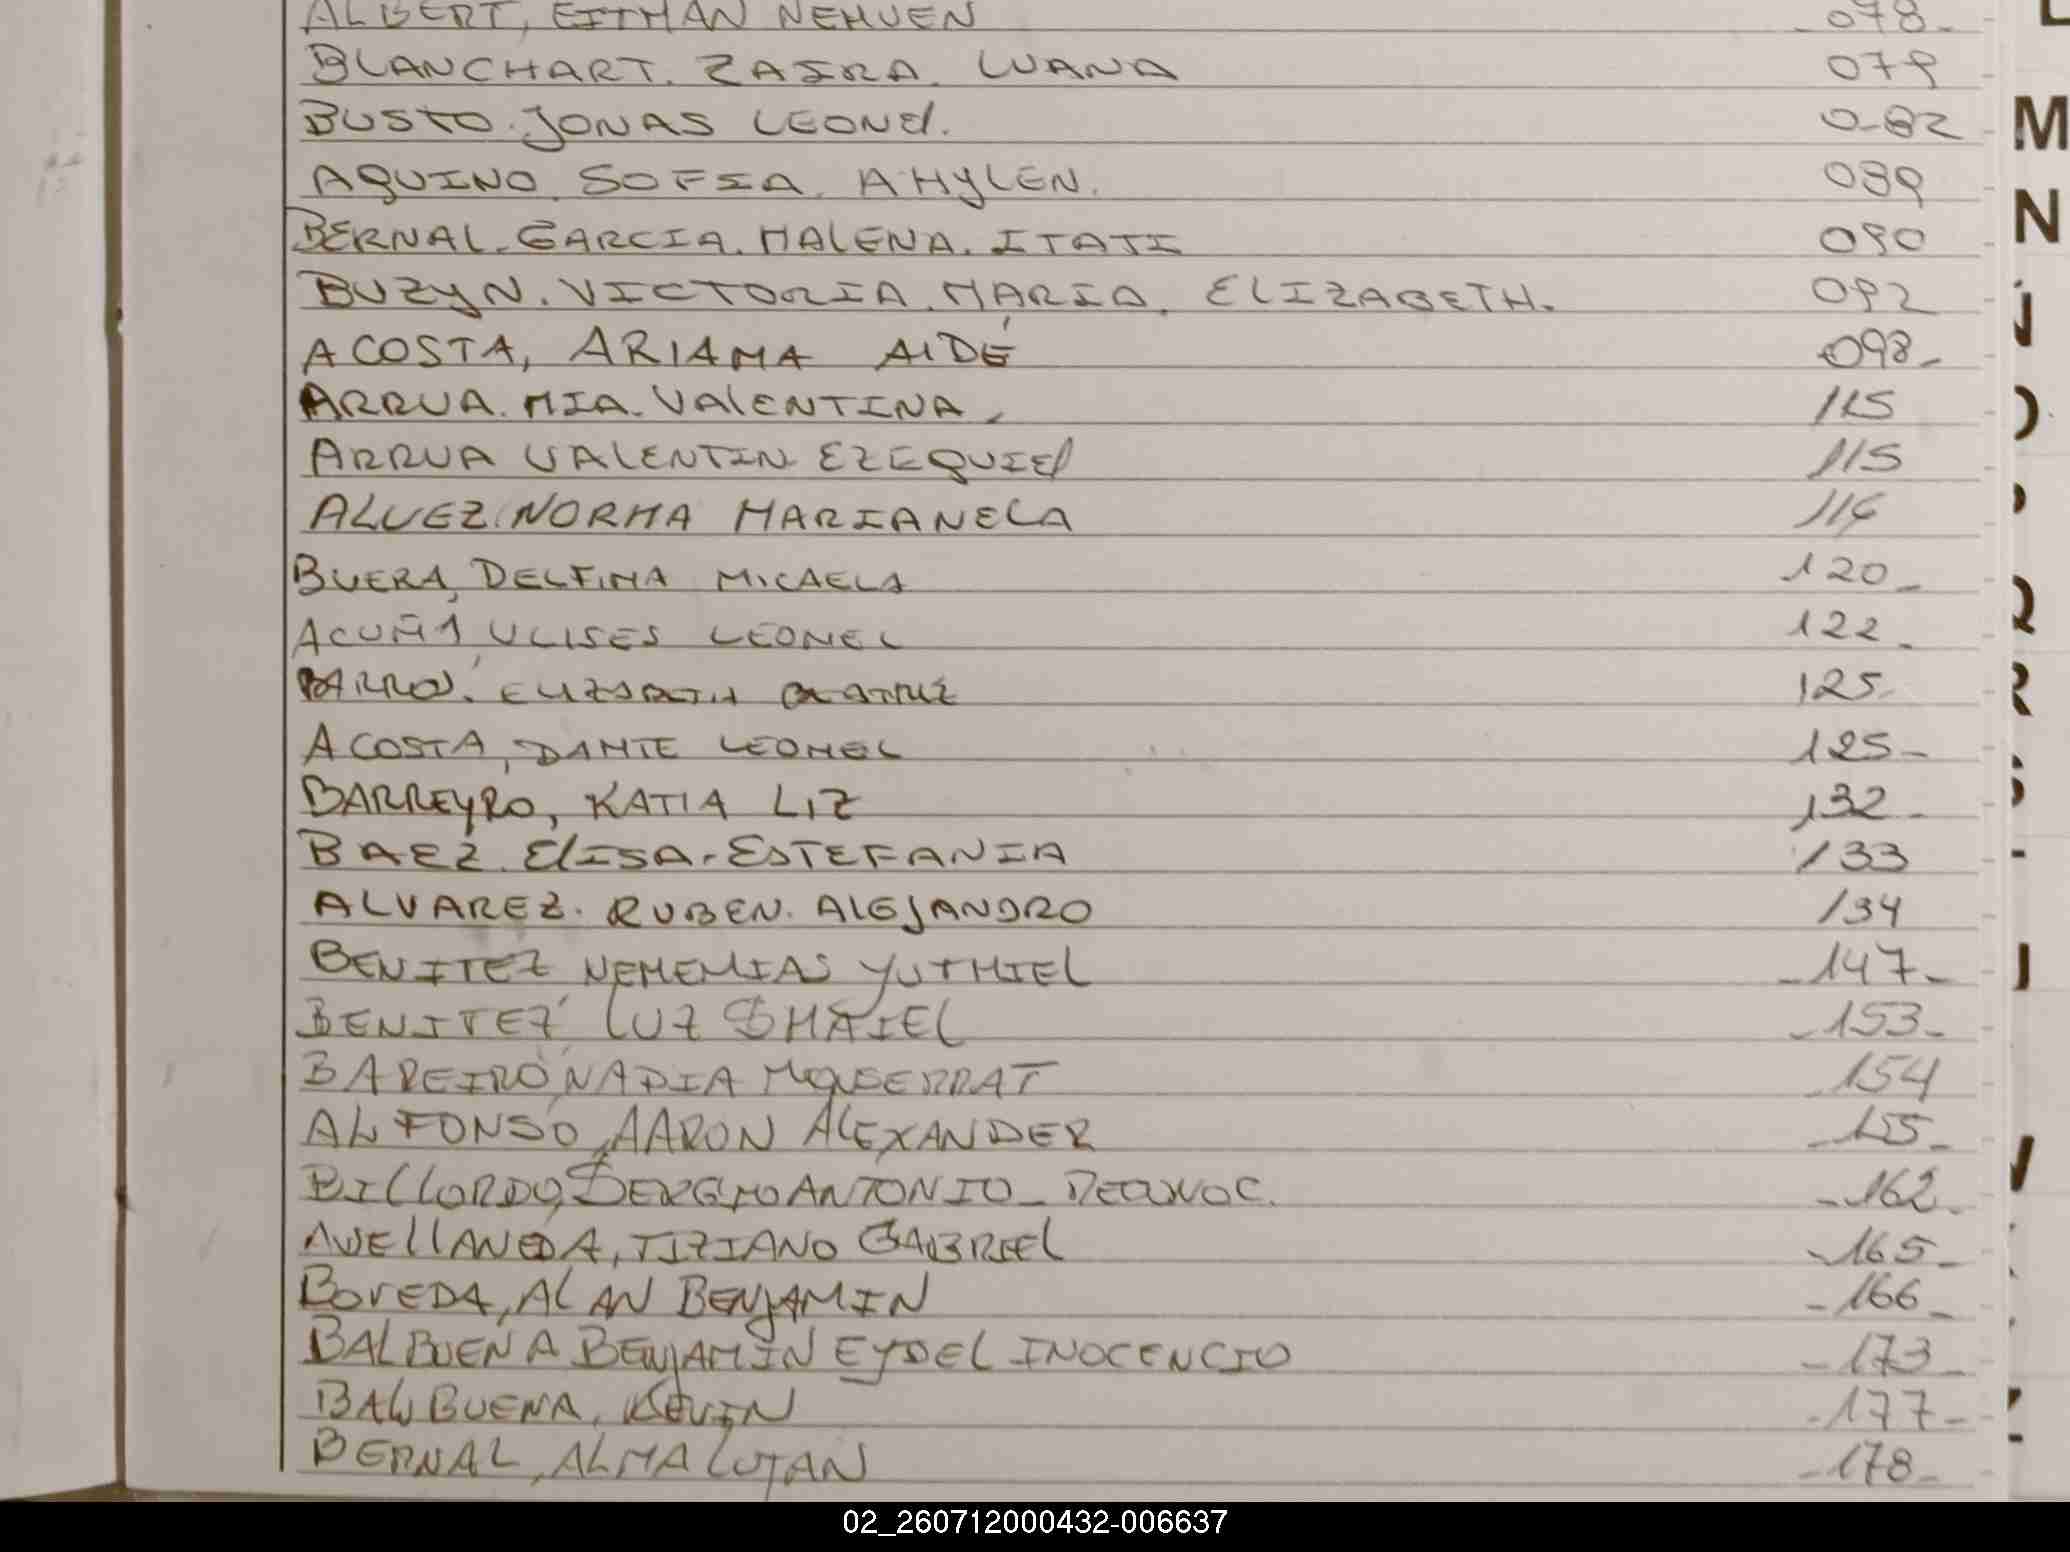 ALBERT, EITHAN NEHUEN 078-
BLANCHART. ZAIRA. LUANA 079
BUSTO. JONAS LEONEL. 082
AQUINO. SOFIA. AHYLEN. 089
BERNAL. GARCIA. MALENA. ITATI 090
BUZYN. VICTORIA. MARIA. ELIZABETH. 092
ACOSTA, ARIAMA AIDÉ 098-
ARRUA. MIA. VALENTINA. 115
ARRUA VALENTIN EZEQUIEL 115
ALVEZ NORMA MARIANELA 116
BUERA, DELFINA MICAELA 120-
ACUÑA, ULISES LEONEL 122-
BARRO, ELIZABETH BEATRIZ 125-
ACOSTA, DANTE LEONEL 125-
BARREYRO, KATIA LIZ 132-
BAEZ. ELISA. ESTEFANIA 133
ALVAREZ. RUBEN. ALEJANDRO 134
BENITEZ NEHEMIAS YUTHIEL -147-
BENITEZ, LUZ SHAIEL -153-
BAREIRO, NADIA MONSERRAT 154
ALFONSO, AARON ALEXANDER -155-
BILLORDO, SERGIO ANTONIO - -162-
AVELLANEDA, TIZIANO GABRIEL -165-
BOVEDA, ALAN BENJAMIN -166-
BALBUENA BENJAMIN EYDEL INOCENCIO -173-
BALBUENA, KEVIN -177-
BERNAL, ALMA LUJAN -178-
L
M
N
O
P
Q
R
S
02_260712000432-006637